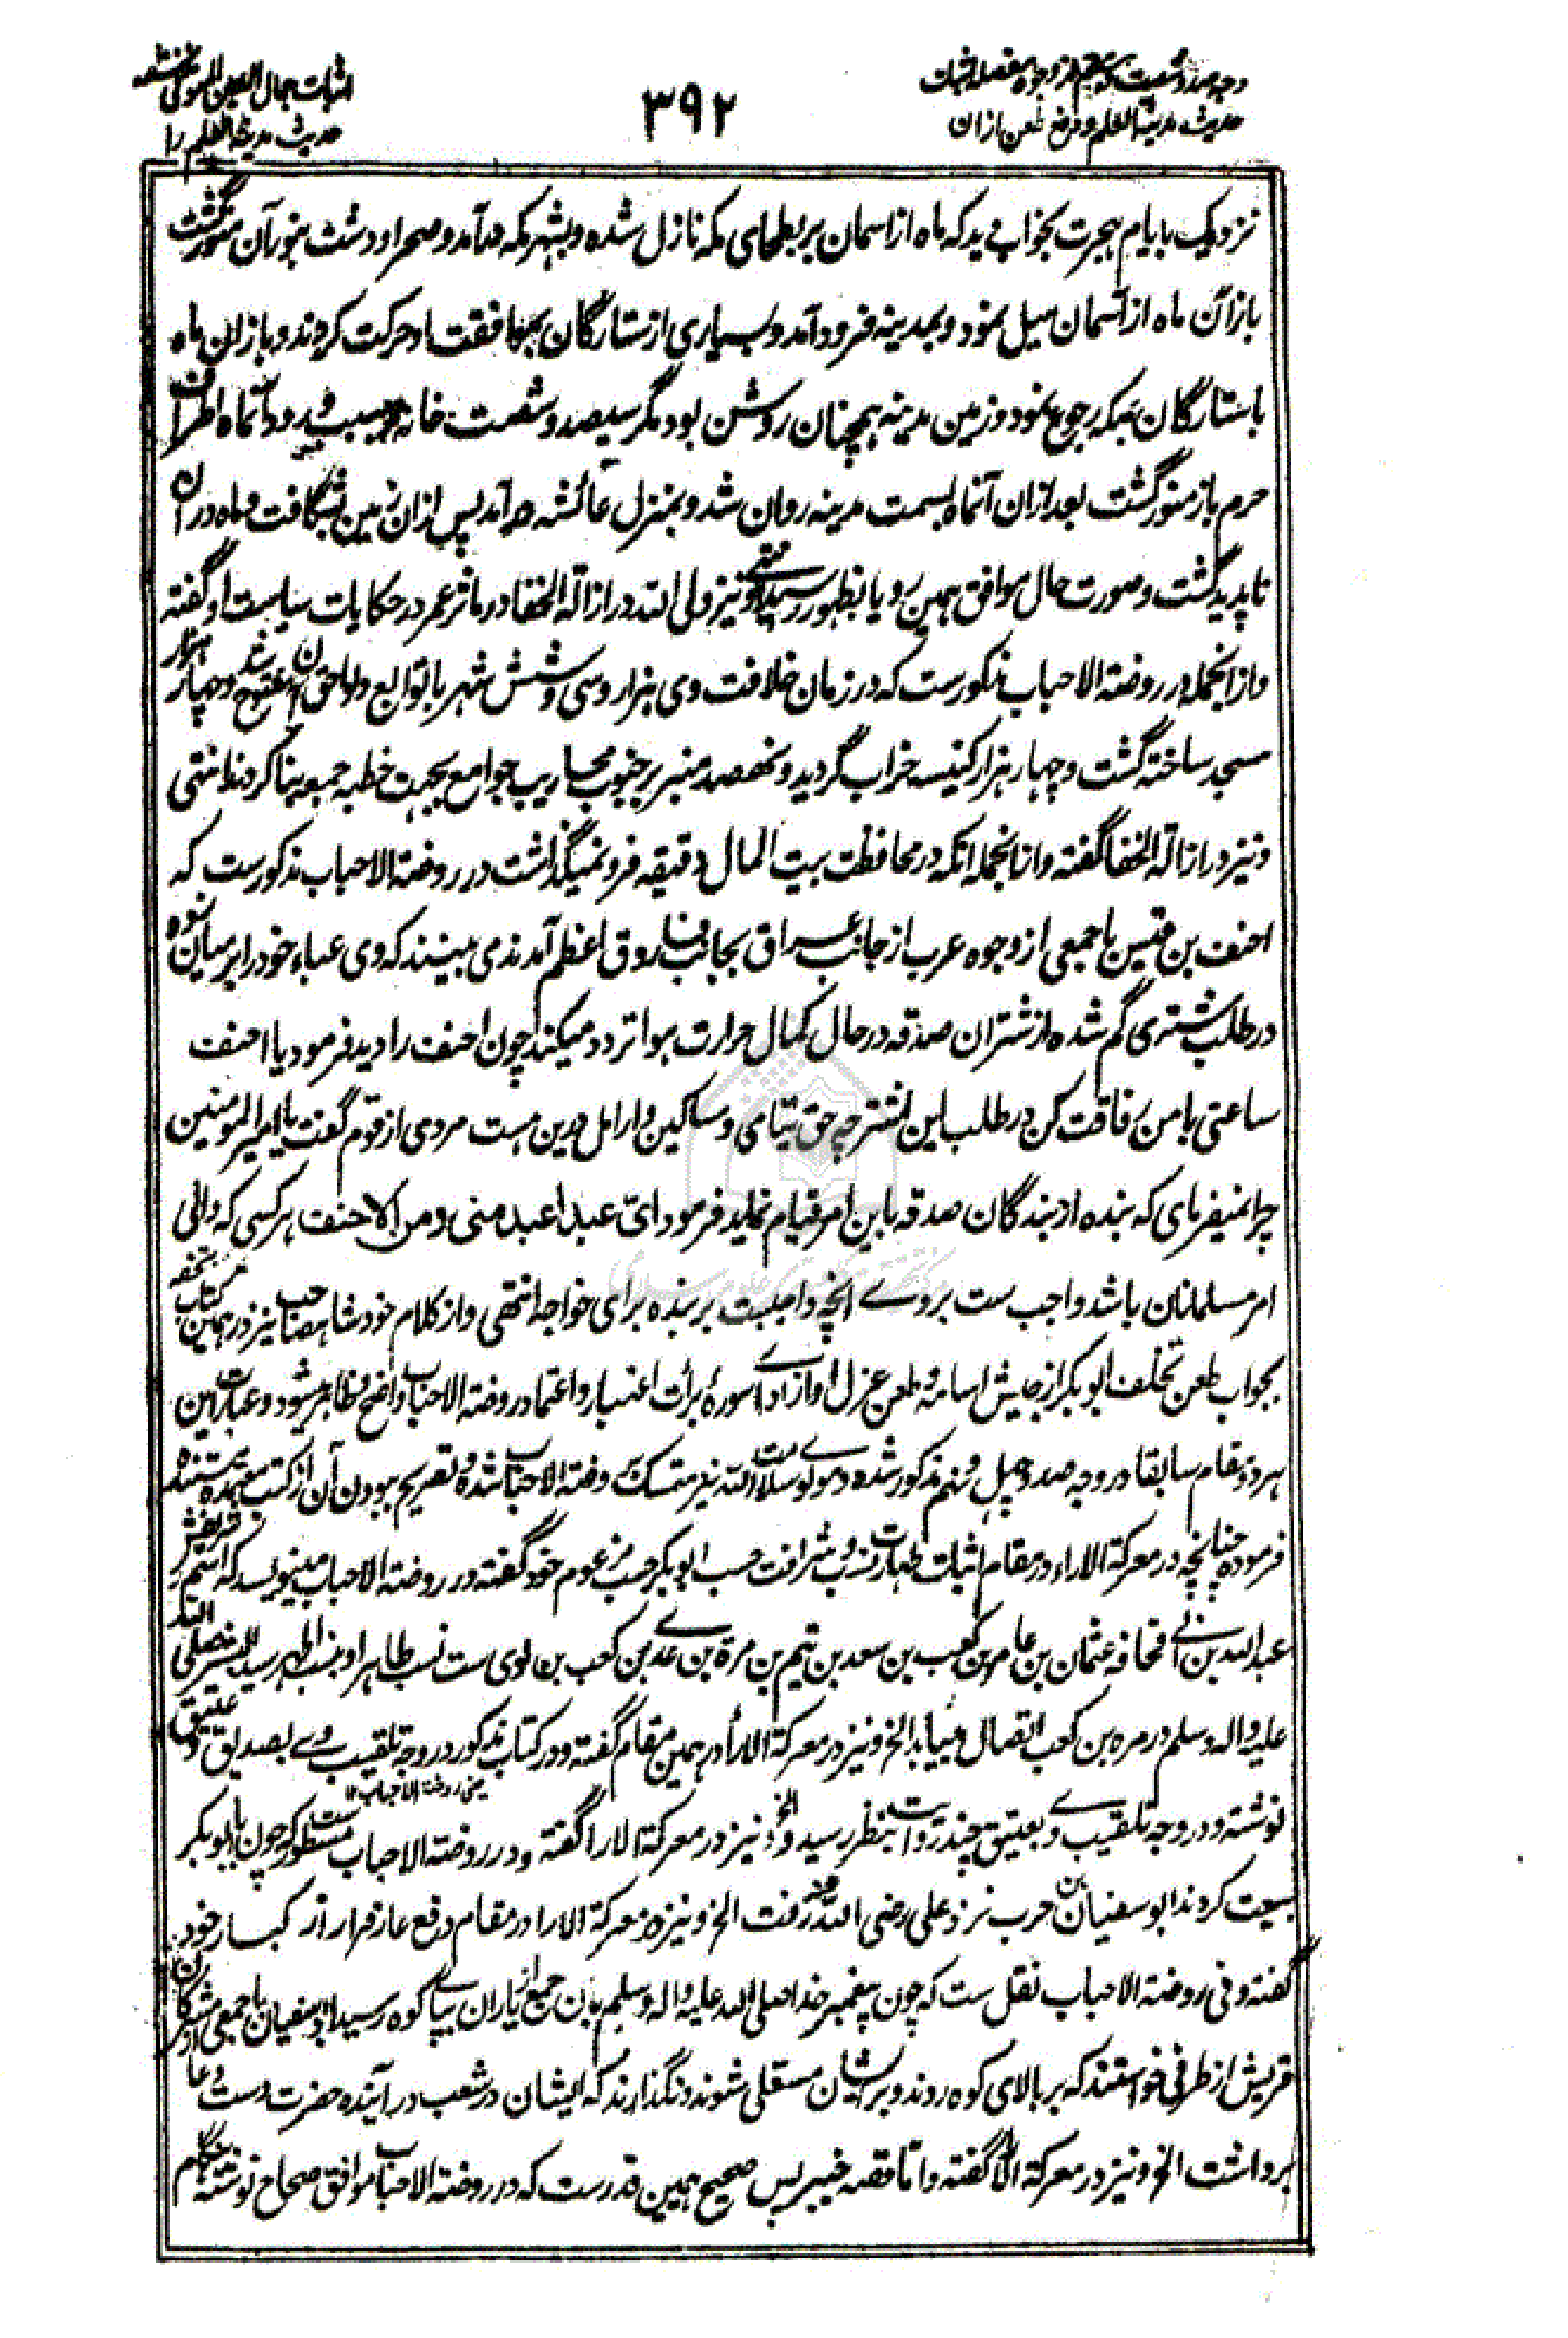 وجه صد و شصت و هفتم از وجوه مفصله اثبات
حدیث مدینة العلم و دفع طعن ازان
۳۹۲
اثبات جمال الدین المحدث
حدیث مدینة العلم را
نزدیک بایام هجرت بخواب دید که ماه از اسمان بر بطحای مکه نازل شده و بشهر مکه درآمد و صحرا و دشت بنور آن منور گشت
باز آن ماه از آسمان میل نمود و بمدینه فرود آمد و بسیاری از ستارگان بموافقت او حرکت کردند و باز ان ماه
با ستارگان بمکه رجوع نمود و زمین مدینه همچنان روشن بود مگر سیصد و شصت خانه و بسبب ورود آنماه اطراف
حرم باز منور گشت بعد ازان آنماه بسمت مدینه روان شد و بمنزل عائشه درآمد پس ازان زمین بشگافت و ماه دران
ناپدید گشت و صورت حال موافق همین رویا بظهور رسید انتهی و نیز ولی الله در ازالة الخفا در مآثر عمر در حکایات سیاست او گفته
و از انجمله در روضة الاحباب مذکورست که در زمان خلافت وی هزار و سی و شش شهر با توابع و لواحق آن مفتوح شد و چهار هزار
مسجد ساخته گشت و چهار هزار کنیسه خراب گردید و نهصد منبر بر جنوب محاریب جوامع بجهت خطبه جمعه بنا کردند انتهی
و نیز در ازالة الخفا گفته و از انجمله انکه در محافظت بیت المال دقیقه فرو نمیگذاشت در روضة الاحباب مذکورست که
احنف بن قیس با جمعی از وجوه عرب از جانب عراق بجانب فاروق اعظم آمدند می بینند که وی عباء خود را بر میان زده
در طلب شتری گم شده از شتران صدقه در حال کمال حرارت هوا تردد میکند چون احنف را دید فرمود یا احنف
ساعتی با من رفاقت کن در طلب این اشتر چه حق یتامی و مساکین و ارامل درین هست مردی از قوم گفت یا امیر المومنین
چرا نمیفرمای که بنده از بندگان صدقه باین امر قیام نماید فرمود ایّ عبد اعبد منی و من الاحنف هر کسی که والی
امر مسلمانان باشد واجب ست بر وے انچه واجبست بر بنده برای خواجه انتهی و از کلام خود شاهصاحب نیز در همین کتاب تحفه
بجواب طعن تخلف ابو بکر از جیش اسامه و طعن عزل او از ادای سورهٔ برأت اعتبار و اعتماد روضة الاحباب واضح و ظاهر میشود و عبارت این
هر دو مقام سابقا در وجه صد و چهل و نهم مذکور شده و مولوی سلامت الله نیز متمسک بروضة الاحباب شده و تصریح ببودن آن از کتب معتمده مستنده
فرموده چنانچه در معرکة الاراء در مقام اثبات طهارت نسب و شرافت حسب ابو بکر حسب مزعوم خود گفته و در روضة الاحباب مینویسد که اسم شریفش
عبد الله بن ابی قحافه عثمان بن عامر بن کعب بن سعد بن تیم بن مرة بن کعب بن لوی ست نسب طاهر او بنسب اطهر سید البشر صلی الله
علیه و اله و سلم در مره بن کعب اتصال مییابد الخ و نیز در معرکة الارأ در همین مقام گفته و در کتاب مذکور در وجه تلقیب وے بصدیق و عتیق
یعنی روضة الاحباب ۱۲
نوشته و در وجه تلقیب وے بعتیق چند روایت بنظر رسید الخ و نیز در معرکة الارا گفته و در روضة الاحباب مسطورست که چون با ابو بکر
بیعت کردند ابو سفیان بن حرب نزد علی رضی الله عنه رفت الخ و نیز در معرکة الارا در مقام دفع عار فرار از کبار خود
گفته و فی روضة الاحباب نقل ست که چون پیغمبر خدا صلی الله علیه و اله و سلم با آن جمع از یاران بپای کوه رسید ابو سفیان با جمعی از مشرکان
قریش از طرفی خواستند که بر بالای کوه روند و بر ایشان مستعلی شوند و نگذارند که ایشان در شعب در آیند حضرت دست و عا
برداشت الخ و نیز در معرکة الارا گفته و اما قصه خیبر پس صحیح همین قدرست که در روضة الاحباب موافق صحاح نوشته هنگام